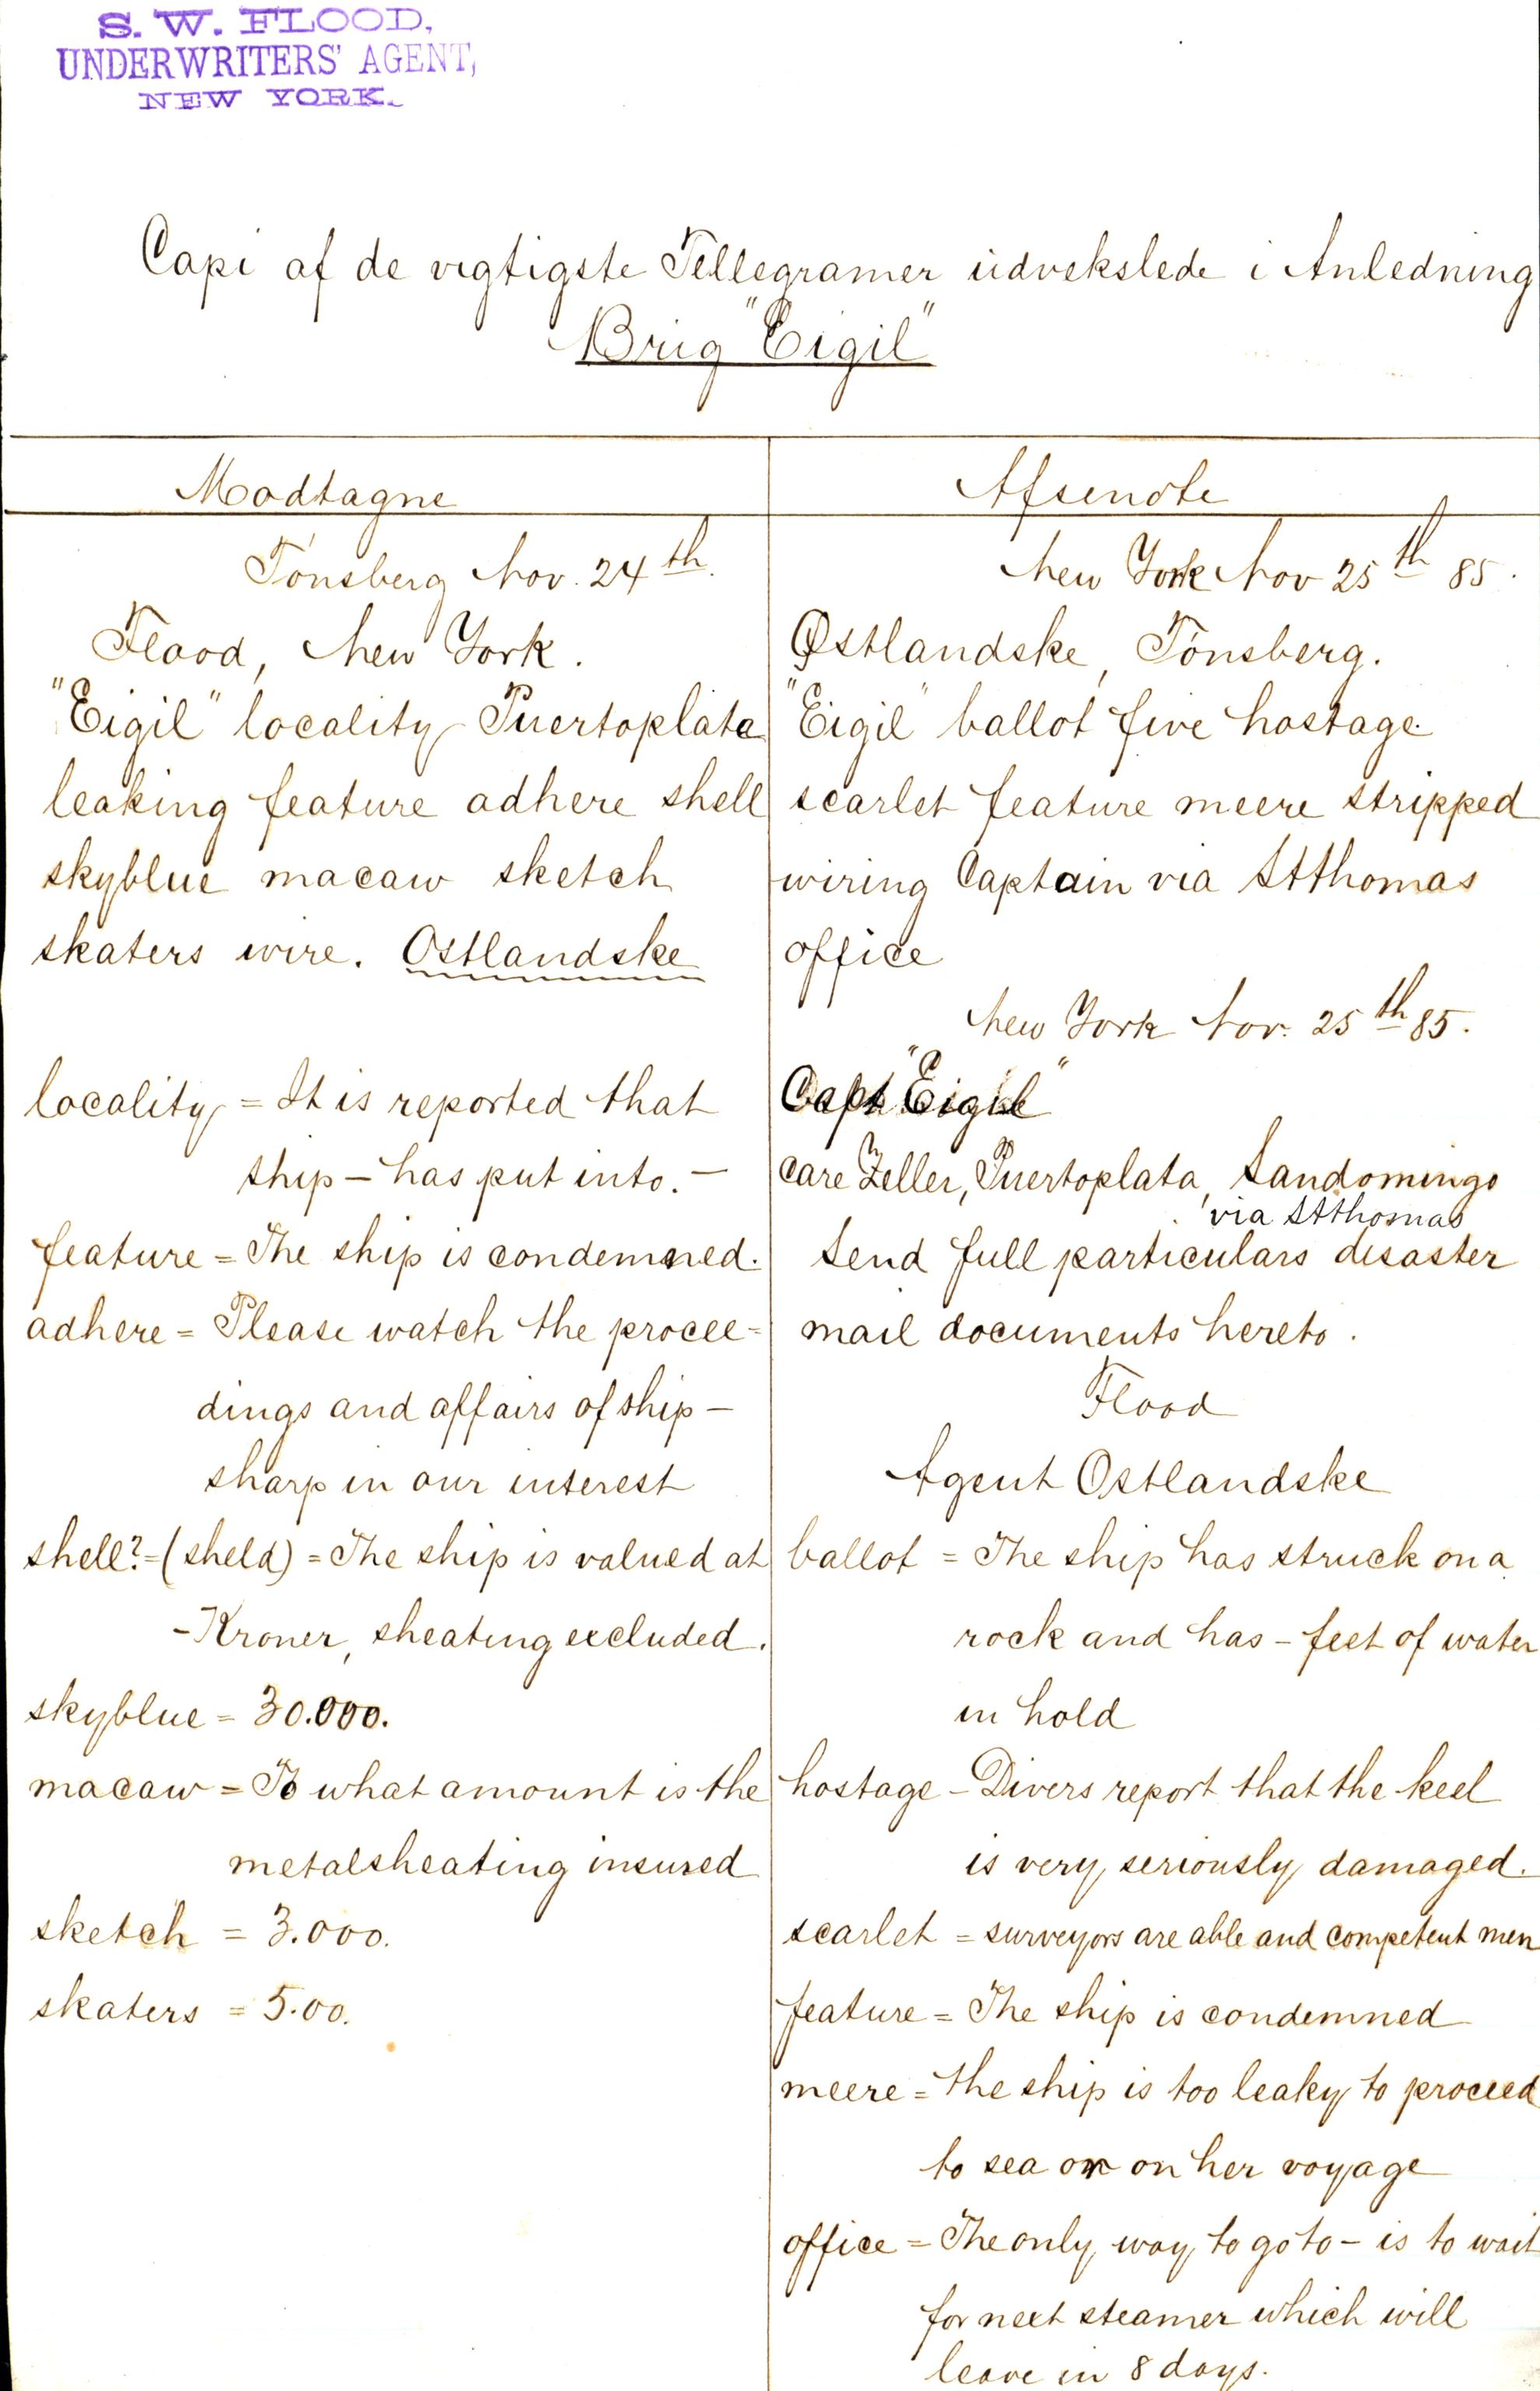 S. W. FLOOD,
UNDERWRITERS' AGENT,
NEW YORK.
Copi af de vigtigste Tellegramer udvekslede i Anledning
Brig "Eigil"
Modtagne
Tönsberg Nov. 24th.
Flood, New York.
"Eigil" locality Puertoplata
leaking feature adhere shell
skyblue macaw sketch
skaters wire. Ostlandske
locality = It is reported that
ship – has put into. –
feature = The ship is condemned.
adhere = Please watch the procee=
dings and affairs of ship –
sharp in our interest
shell? = (sheld) = The ship is valued at
– Kroner, sheating excluded.
skyblue = 30.000.
macaw = To what amount is the
metalsheating insured
sketch = 3.000.
skaters = 5.00.
Afsendte
New York Nov 25th 85.
Østlandske, Tönsberg.
"Eigil" ballot five hostage
scarlet feature meere stripped
wiring Captain via StThomas
office
New York Nov. 25th 85.
Capt "Eigil"
Care Zeller, Puertoplata, Sandomingo
via StThomas
Send full particulars disaster
mail documents hereto.
Flood
Agent Ostlandske
ballot = The ship has struck on a
rock and has – feet of water
in hold
hostage – Divers report that the keel
is very seriously damaged.
scarlet = surveyors are able and competent men
feature = The ship is condemned
meere = the ship is too leaky to proceed
to sea or on her voyage
office = The only way to go to – is to wait
for next steamer which will
leave in 8 days.